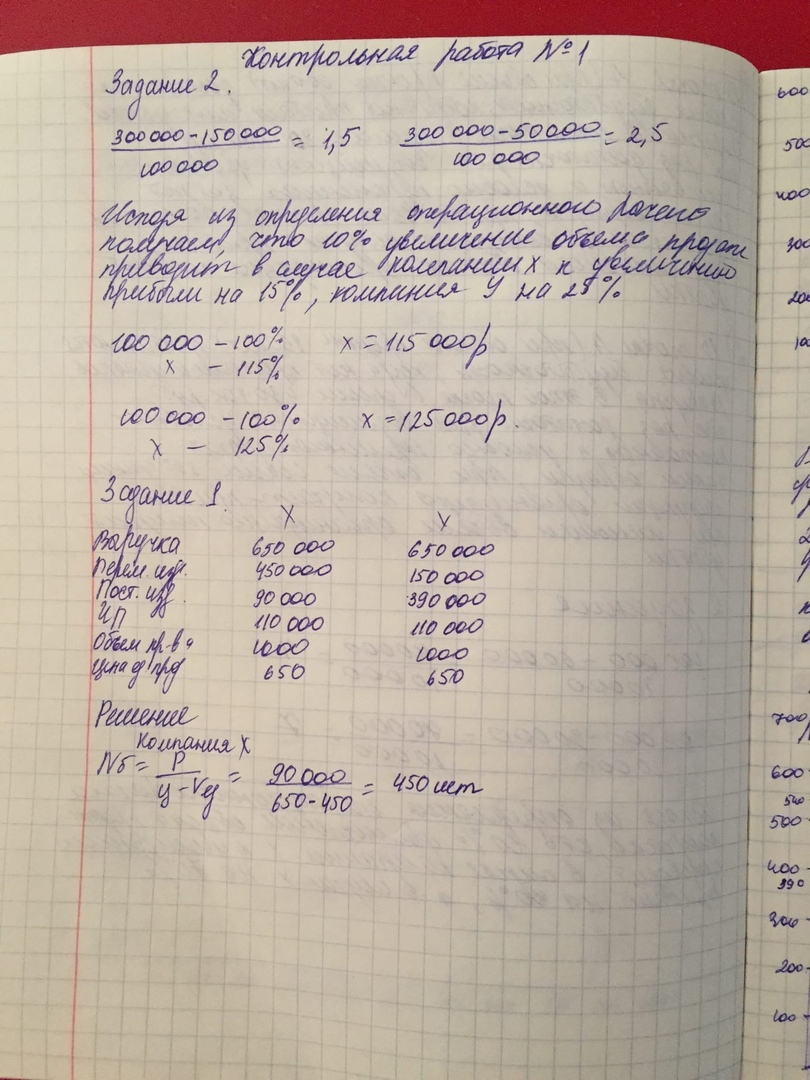 Контрольная работа №1
Задание 2.
300000-150000/100000 = 1,5   300 000-50000/100 000 = 2,5
Исходя из определения операционного рычага
получаем, что 10% увеличение объема продаж
приводит в случае компании X к увеличению
прибыли на 15%, компания У на 25%
100 000 - 100%   x = 115 000р
x - 115%
100 000 - 100%   x = 125 000р.
x - 125%
Задание 1.
X   Y
Выручка 650 000 650 000
Перем. изд. 450000 150 000
Пост. изд. 90 000 390 000
ЧП 110 000 110 000
Объем пр-ва 1000 1000
Цена ед прд 650 650
Решение
Компания X
Nб = P/ц-Vед = 90 000/650-450 = 450 шт
600
500
400
300
200
100
700
600
540
500
400
390
300
200
100